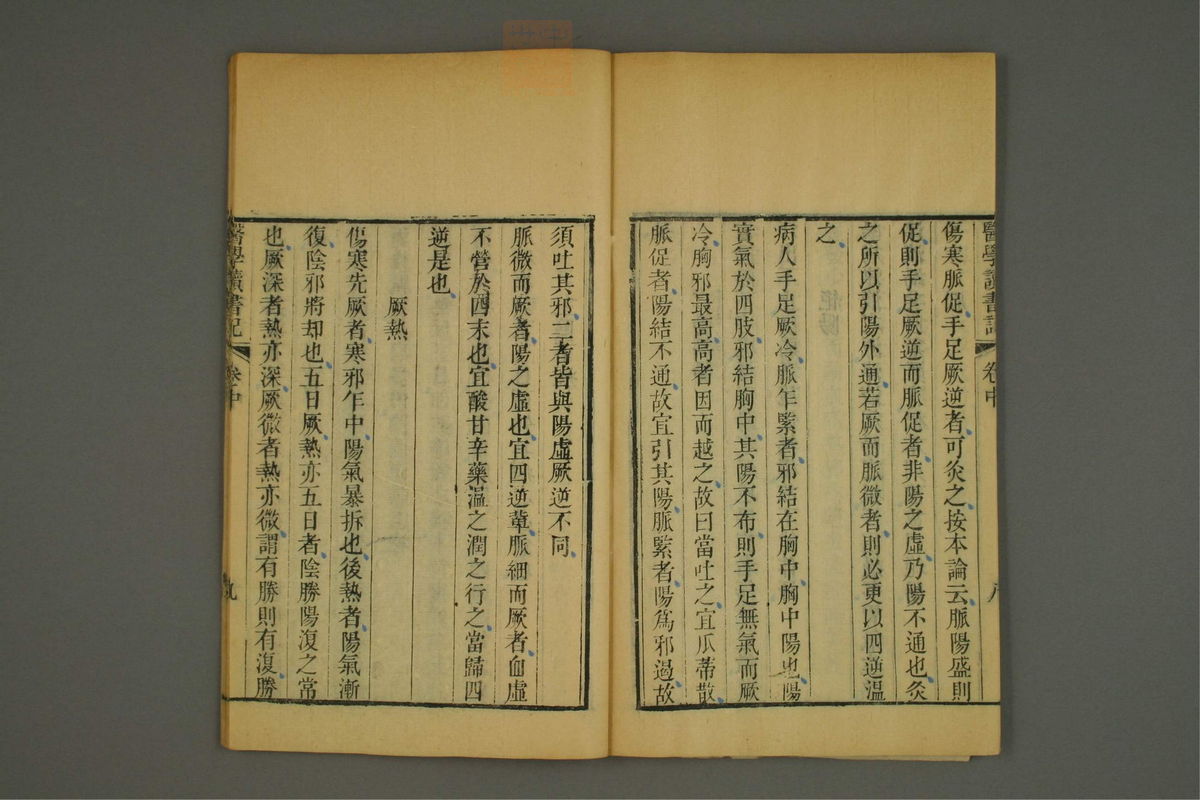 醫學讀書記 卷中 八
傷寒脈促手足厥逆者可灸之按本論云脈陽盛則
促則手足厥逆而脈促者非陽之虛乃陽不通也灸
之所以引陽外通若厥而脈微者則必更以四逆溫
之
病人手足厥冷脈乍緊者邪結在胸中胸中陽也陽
實氣於四肢邪結胸中其陽不布則手足無氣而厥
冷胸邪最高高者因而越之故曰當吐之宜瓜蒂散
脈促者陽結不通故宜引其陽脈緊者陽為邪遏故
須吐其邪二者皆與陽虛厥逆不同
脈微而厥者陽之虛也宜四逆輩脈細而厥者血虛
不營於四末也宜酸甘辛藥溫之潤之行之當歸四
逆是也
厥熱
傷寒先厥者寒邪乍中陽氣暴拆也後熱者陽氣漸
復陰邪將却也五日厥熱亦五日者陰勝陽復之常
也厥深者熱亦深厥微者熱亦微謂有勝則有復勝
醫學讀書記 卷中 九